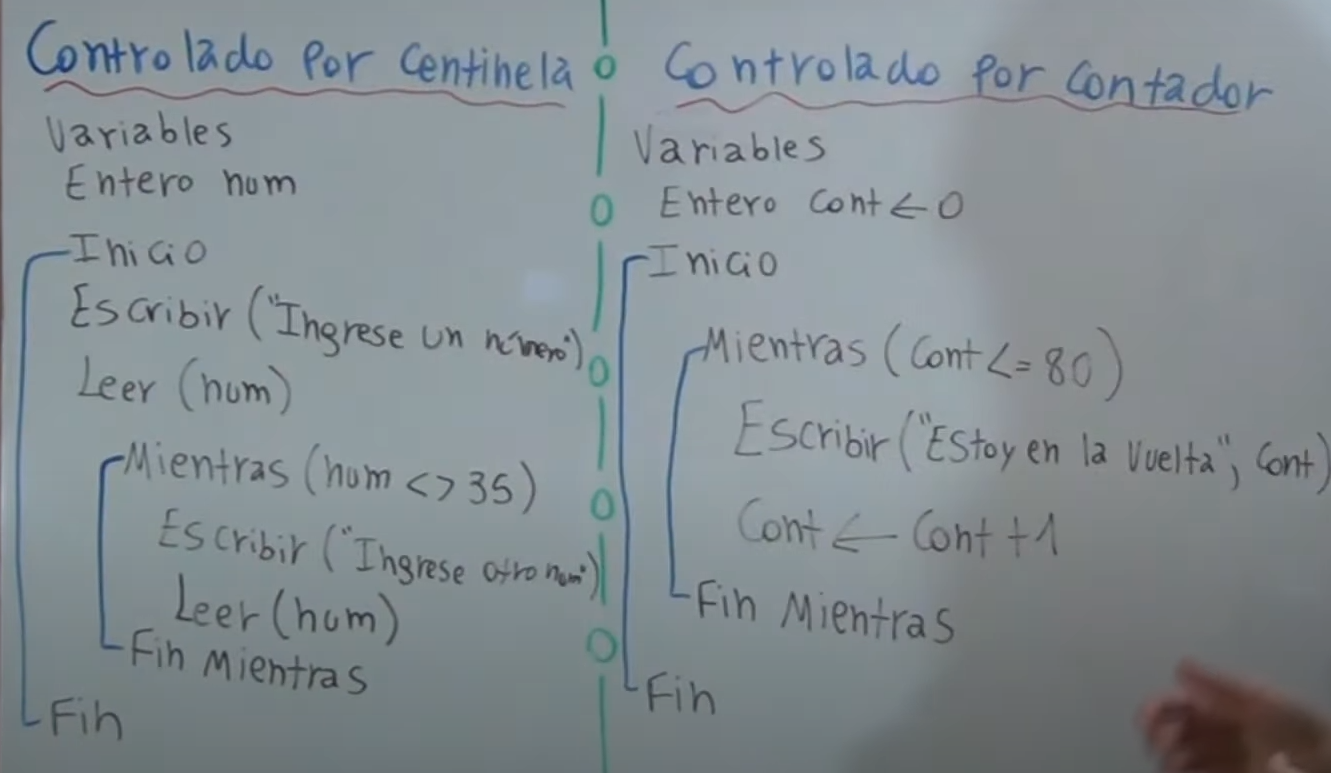 Controlado por Centinela
Variables
Entero num
Inicio
Escribir ("Ingrese un número")
Leer (num)
Mientras (num <> 35)
Escribir ("Ingrese otro num")
Leer (num)
Fin Mientras
Fin
Controlado por Contador
Variables
Entero Cont ← 0
Inicio
Mientras (Cont <= 80)
Escribir ("Estoy en la Vuelta", Cont)
Cont ← Cont + 1
Fin Mientras
Fin